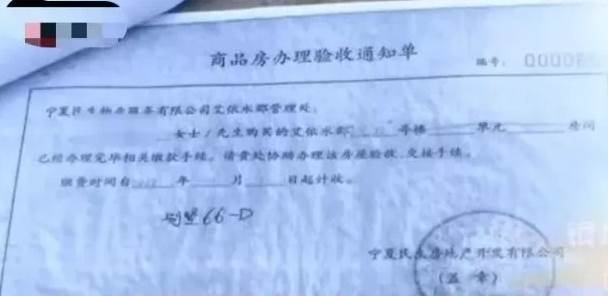 商品房办理验收通知单
编号： 00006
宁夏民生物业服务有限公司艾依水郡管理处：
女士/先生购买的艾依水郡 号楼 单元 房间
已经办理完毕相关缴款手续。请贵处协助办理该房屋验收、交接手续。
缴费时间自 年 月 日起计收。
66-D
宁夏民生房地产开发有限公司
（盖 章）